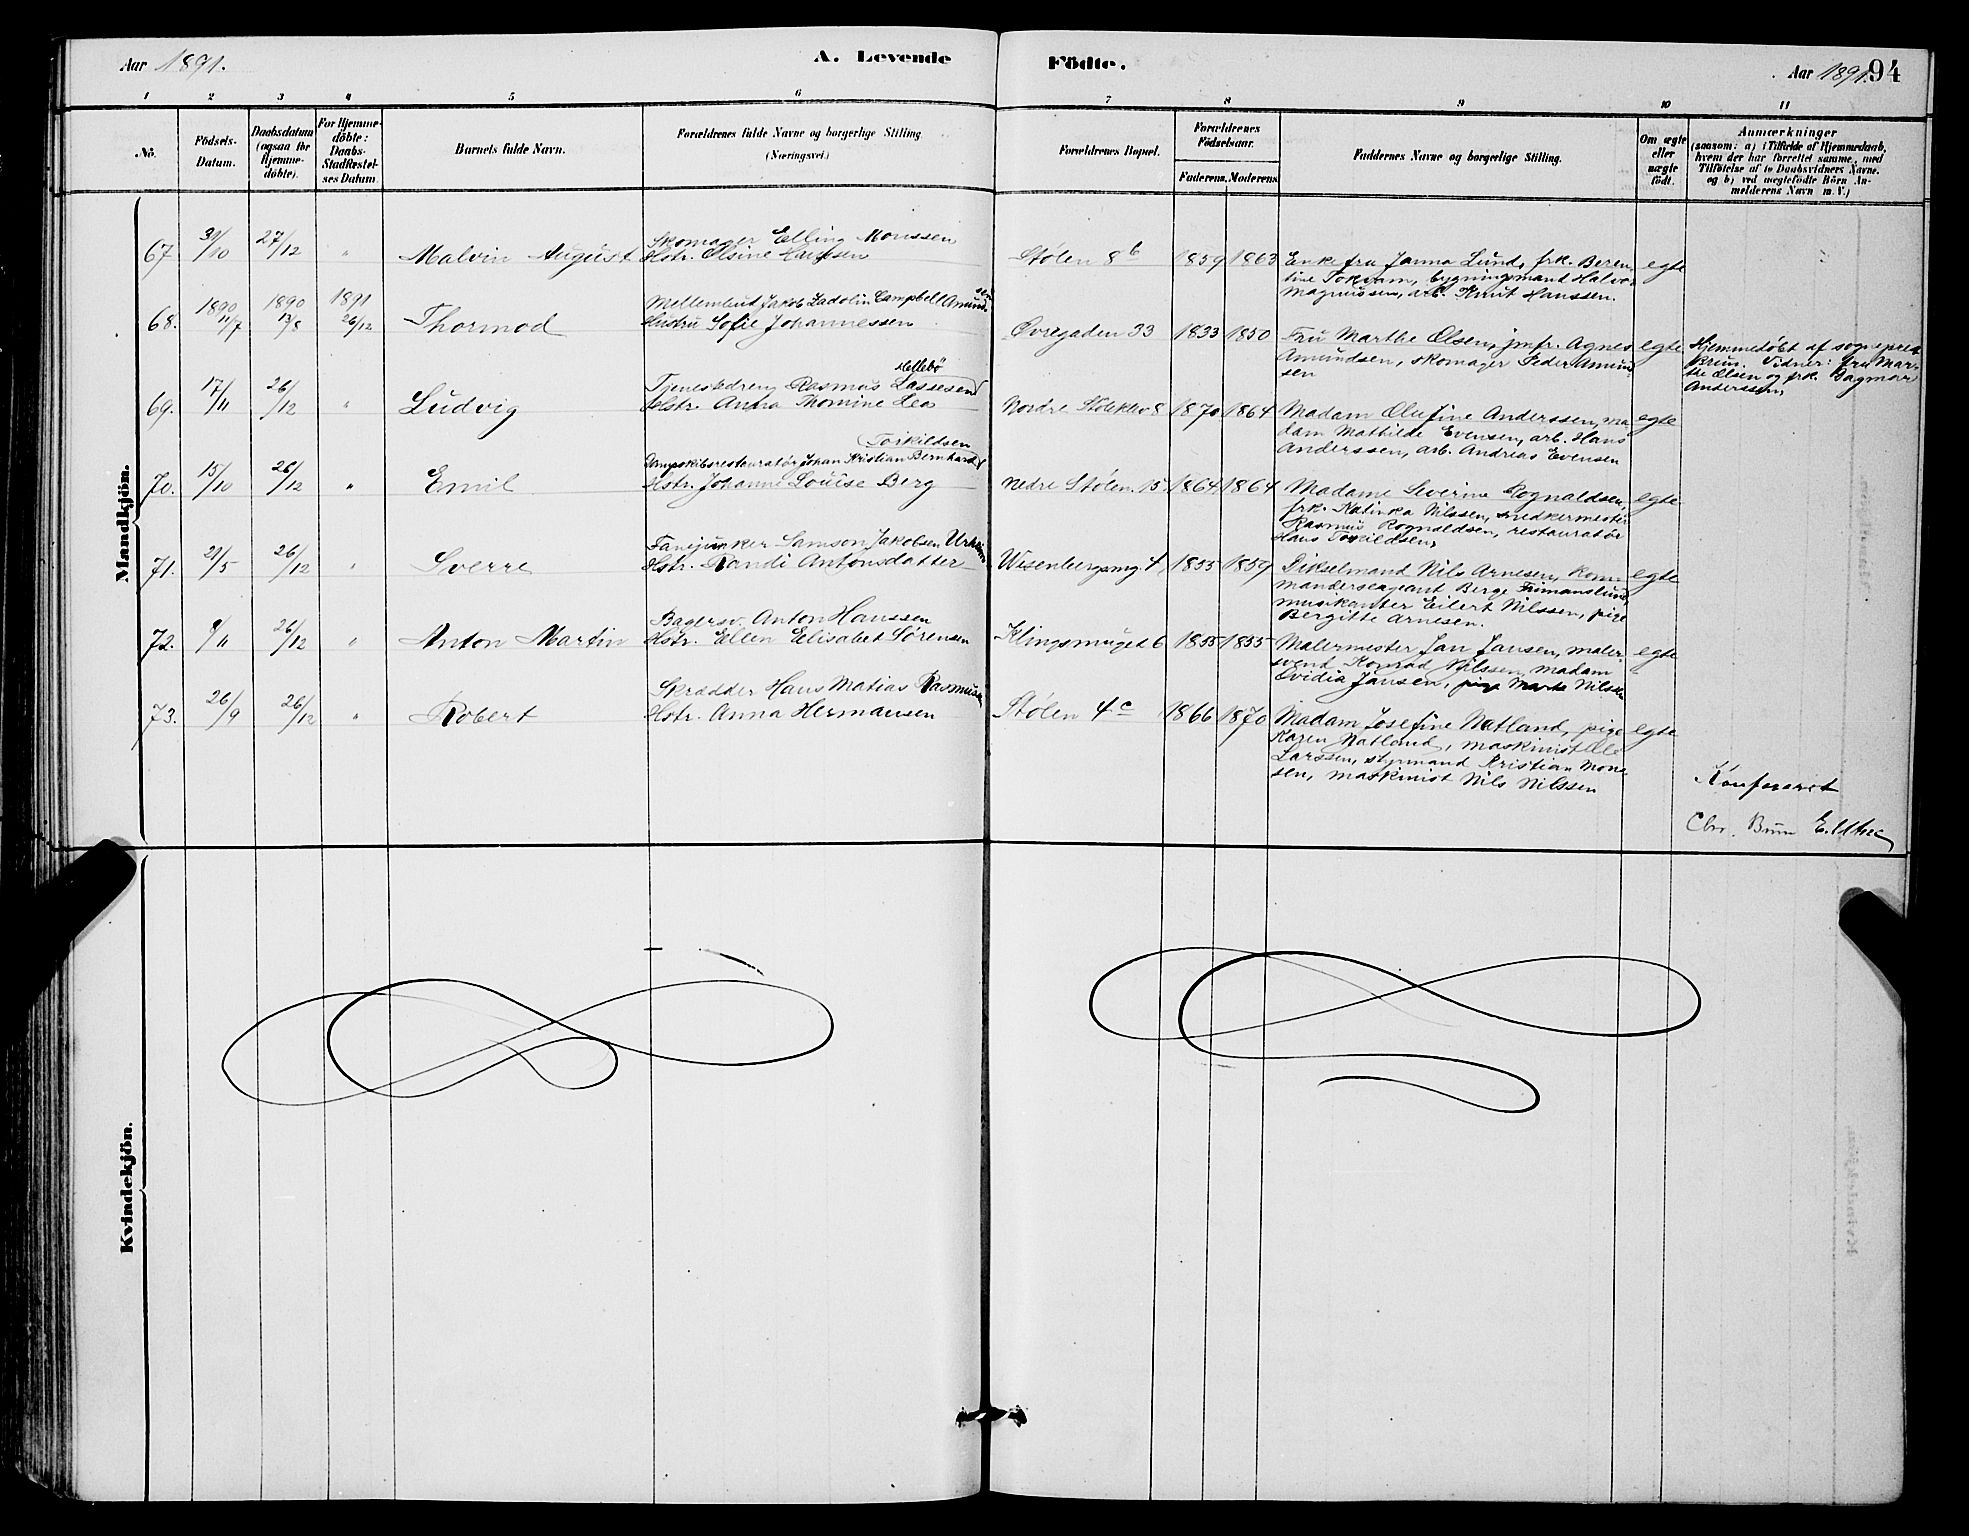 Aar 1891.
A. Levende Födte.
Aar 1891.
94
1 2 3 4 5 6 7 8 9 10 11
No.
Födsels-
Datum.
Daabsdatum
(ogsaa for
Hjemme-
döbte).
For Hjemme-
döbte:
Daabs-
Stadfæstel-
ses Datum.
Barnets fulde Navn.
Forældrenes fulde Navne og borgerlige Stilling
(Næringsvei.)
Forældrenes Bopæl.
Forældrenes
Födselsaar.
Faderens. Moderens.
Faddernes Navne og borgerlige Stilling.
Om ægte
eller
uægte
födt.
Anmærkninger
(saasom: a) i Tilfælde af Hjemmedaab,
hvem der har forrettet samme, med
Tilföielse af to Daabsvidners Navne,
og b) ved uægtefödte Börn An-
melderens Navn m. V.)
Mandkjön.
67 31/10 27/12 " Malvin August
Skomager Elling Monssen
Hstr. Olsine Hanssen
Stølen 8b 1859 1863
Enkefru Janna Lund, frk. Beren-
tine Tokvam, bygningsmand Halvor
Magnussen, arb. Knut Hanssen.
egte
68. 1890 11/7 1890 13/8 1891 26/12 Thormod
Mellembud Jakob Ladolin Campbell Amund-
sen
Hustru Sofie Johannessen
Øvregaden 33 1833 1850
Fru Marthe Olsen, jmfr. Agnes
Amundsen, skomager Peder Amund-
sen
egte
Hjemmedøbt af sogneprest
Brun. Vidner: fru Mar-
the Olsen og frk. Dagmar
Anderssen.
69. 17/11 26/12 " Ludvig
Mellebö
Tjenestedreng Rasmus Lassesen
Hstr. Anna Thomine Lea
Nordre Støleklev 8 1870 1864
Madam Olufine Anderssen, ma-
dam Mathilde Evensen, arb. Hans
Anderssen, arb. Andreas Evensen
egte
70. 15/10 26/12 " Emil
Torkildsen
Dampskibsrestauratør Johan Kristian Bernhard
Hstr. Johanne Louise Berg
Nedre Stølen 15 1864 1864
Madame Severine Rognaldsen,
frk. Katinka Nilssen, snedkermester
Rasmus Rognaldsen, restauratør
Hans Torkildsen,
egte
71. 21/5 26/12 " Sverre
Fanejunker Samson Jakobsen Urheim
Hstr. Randi Antonsdatter
Wesenbergsmg. 4 1855 1859
Dikselmand Nils Arnesen, kom-
mandersergeant Berge Frimanslund,
musikanter Eilert Nilssen, pige
Bergitte Arnesen.
egte
72. 9/11 26/12 " Anton Martin
Bagersv. Anton Hanssen
Hstr. Ellen Elisabet Sørensen
Klingsmuget 6 1855 1855
Malermester Jan Jansen, maler-
svend Konrad Nilssen, madam
Ovidia Jansen, pige Marta Nilssen
egte
73. 26/9 26/12 " Robert
Skrædder Hans Matias Rasmussen
Hstr. Anna Hermansen
Stølen 4c 1866 1870
Madam Josefine Natland, pige
Karen Natland, maskinist Ole
Larssen, styrmand Kristian Mons-
sen, maskinist Nils Nilssen
egte
Konfereret
Chr. Brun
Kvindekjön.